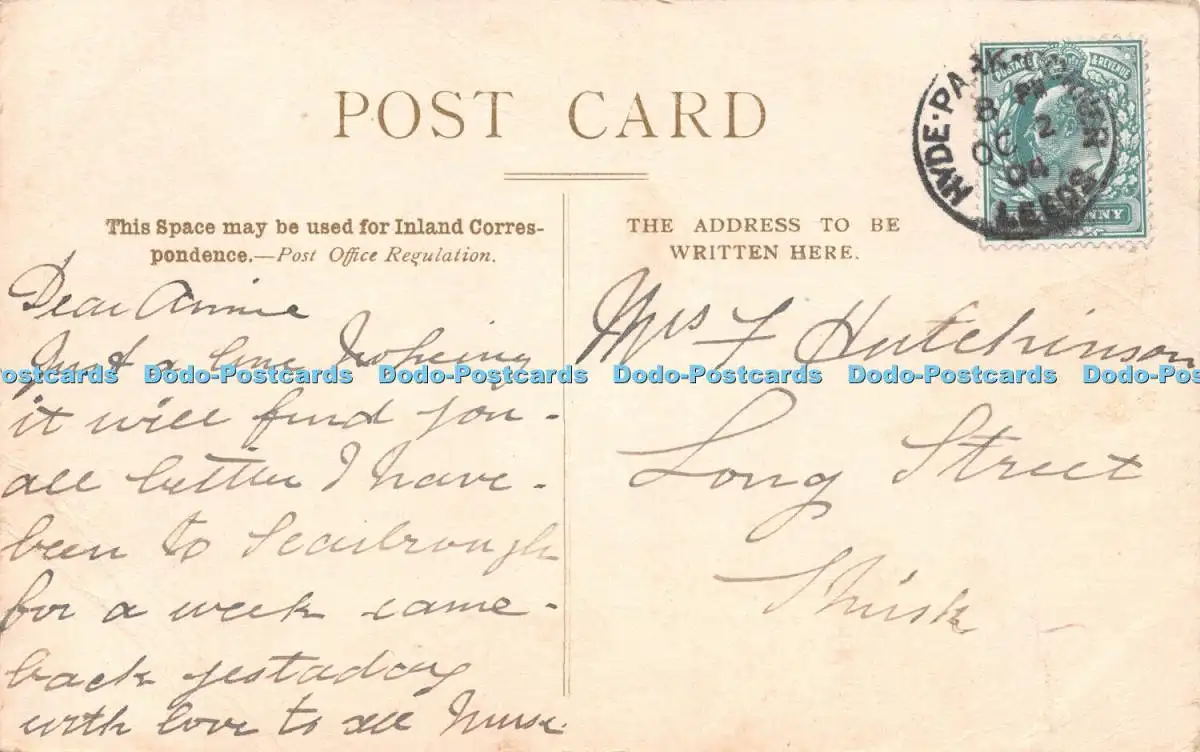 POST CARD
This Space may be used for Inland Corres-
pondence.—Post Office Regulation.
THE ADDRESS TO BE
WRITTEN HERE.
POSTAGE & REVENUE
HYDE·PARK
8 PM
OC 2
04
LEEDS
Dear Annie
Just a line hopeing
it will find you -
all better I have -
been to Scarbrough
for a week came -
back yestaday
with love to all Nurse
Mrs F Hutchinson
Long Street
Thirsk
Dodo-Postcards Dodo-Postcards Dodo-Postcards Dodo-Postcards Dodo-Postcards